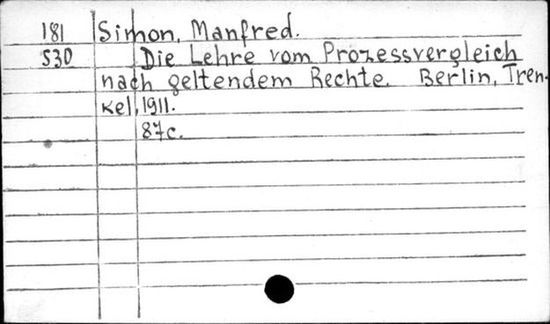 181 Simon, Manfred.
530 Die Lehre vom Prozessvergleich
nach geltendem Rechte. Berlin, Tren-
kel, 1911.
87c.